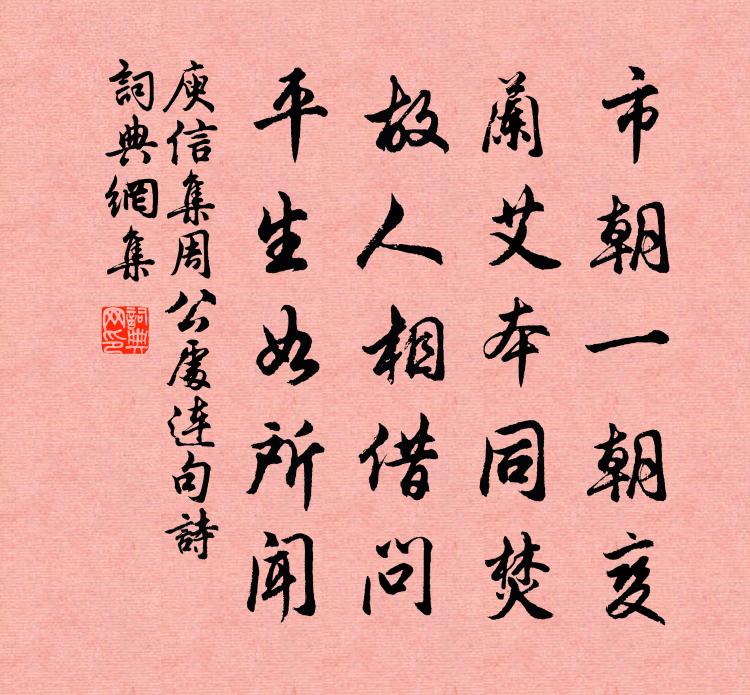 市朝一朝变
蘭艾本同焚
故人相借问
平生如所闻
庾信集周公處連句詩
詞典網集
詞典网印